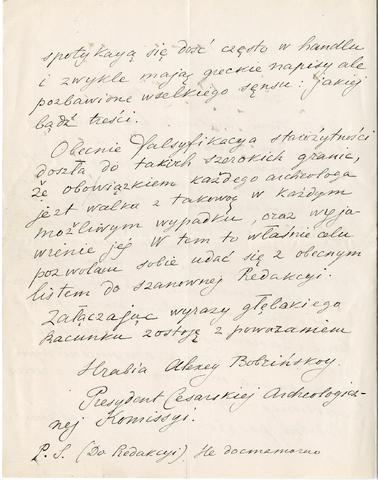 spotykają się dość często w handlu
i zwykle mają greckie napisy ale
pozbawione wselkiego sęnsu: jakiej
bądź treści.
Obecnie falsyfikacya starożytności
doszła do takich szerokich granic,
że obowiązkiem każdego archeologa
jezt walka z takową w każdym
możliwym wypadku, oraz wyja-
wienie jej. W tem to właśnie celu
pozwalam sobie udać się z obecnym
listem do szanownej Redakcyi.
Załączając wyrazy głębakiego
szacunku zostoję z poważaniem
Hrabia Alexey Bobrińskoy.
Prezydent Cesarskiej Archeologicz-
nej Komissyi.
P. S. (Do Redakcyi).